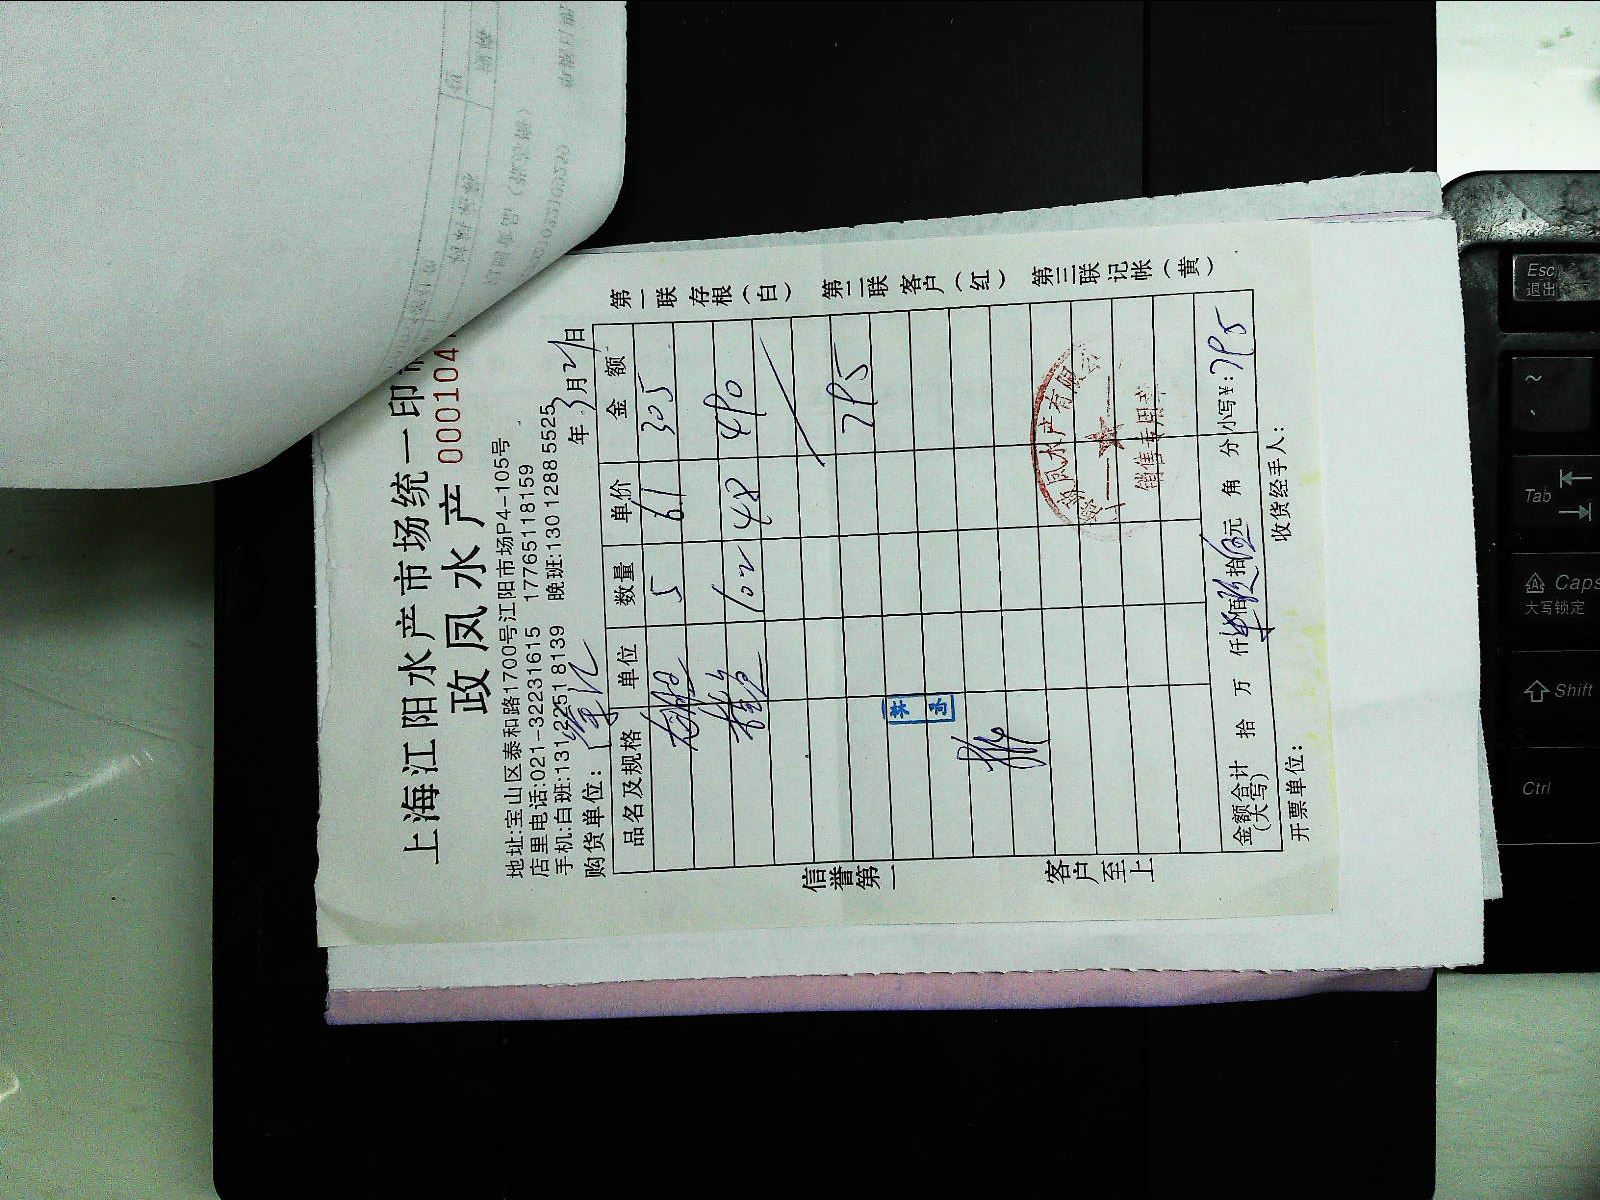 上海江阳水产市场统一印制
政凤水产 000104
地址:宝山区泰和路1700号江阳市场P4-105号
店里电话:021-32231615 17765118159
手机:白班:131 2251 8139 晚班:130 1288 5525
购货单位: 年 3月21日
品名及规格 单位 数量 单价 金额
5 61 305
102 48 490
795
金额合计(大写) 拾 万 仟 佰 拾 元 角 分 小写¥:795
开票单位: 收货经手人:
第一联存根(白) 第二联客户(红) 第三联记帐(黄)
信誉第一 客户至上
凤水产有限公
销售专用章
Esc
退出
~
Tab
Caps
大写锁定
Shift
Ctrl